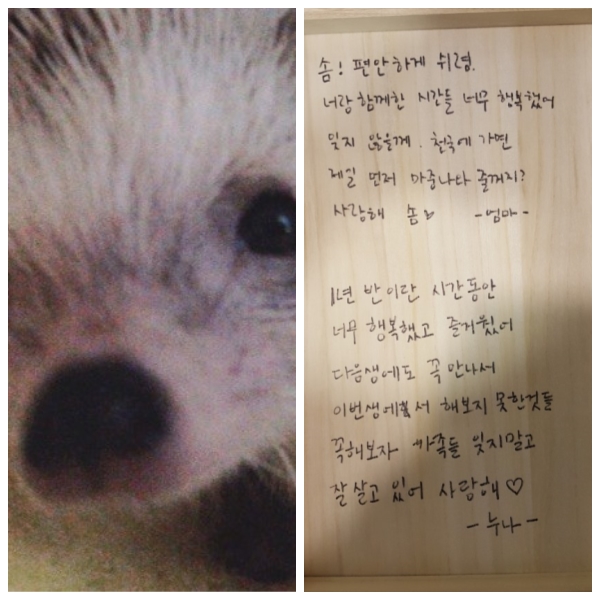 솜! 편안하게 쉬렴.
너랑 함께한 시간들 너무 행복했어
잊지 않을께. 천국에 가면
제일 먼저 마중나와 줄꺼지?
사랑해 솜♡ -엄마-
1년 반이란 시간동안
너무 행복했고 즐거웠어
다음생에도 꼭 만나서
이번생에서 해보지 못한것들
꼭해보자 가족들 잊지말고
잘 살고 있어 사랑해♡
-누나-